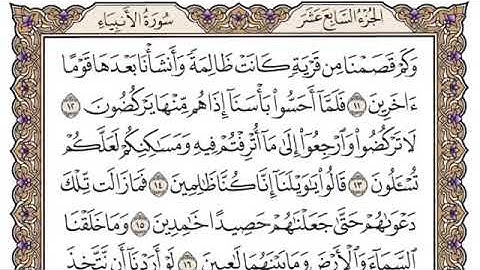 سُورَةُ الأَنبِيَاءِ الجُزءُ السَّابِعَ عَشَرَ
وَكَمْ قَصَمْنَا مِن قَرْيَةٍ كَانَتْ ظَالِمَةً وَأَنشَأْنَا بَعْدَهَا قَوْمًا
ءَاخَرِينَ ١١ فَلَمَّآ أَحَسُّواْ بَأْسَنَآ إِذَا هُم مِّنْهَا يَرْكُضُونَ ١٢
لَا تَرْكُضُواْ وَٱرْجِعُوٓاْ إِلَىٰ مَآ أُتْرِفْتُمْ فِيهِ وَمَسَٰكِنِكُمْ لَعَلَّكُمْ
تُسْـَٔلُونَ ١٣ قَالُواْ يَٰوَيْلَنَآ إِنَّا كُنَّا ظَٰلِمِينَ ١٤ فَمَا زَالَت تِّلْكَ
دَعْوَىٰهُمْ حَتَّىٰ جَعَلْنَٰهُمْ حَصِيدًا خَٰمِدِينَ ١٥ وَمَا خَلَقْنَا
ٱلسَّمَآءَ وَٱلْأَرْضَ وَمَا بَيْنَهُمَا لَٰعِبِينَ ١٦ لَوْ أَرَدْنَآ أَن نَّتَّخِذَ